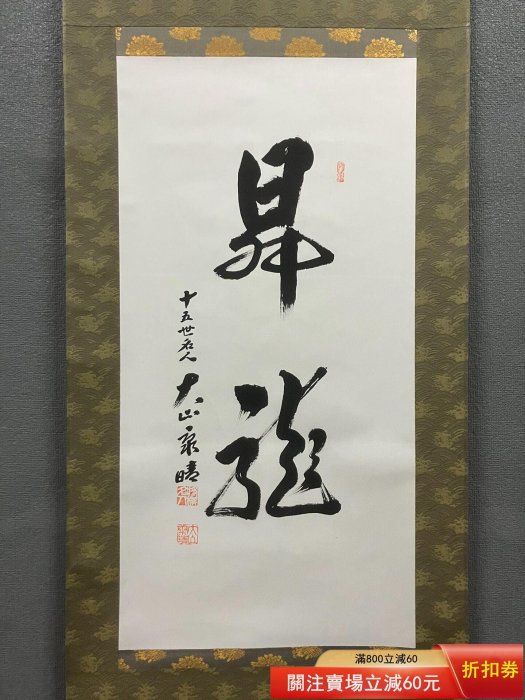 昇龍
十五世名人 大山康晴
滿800立減60
關注賣場立減60元
折扣券